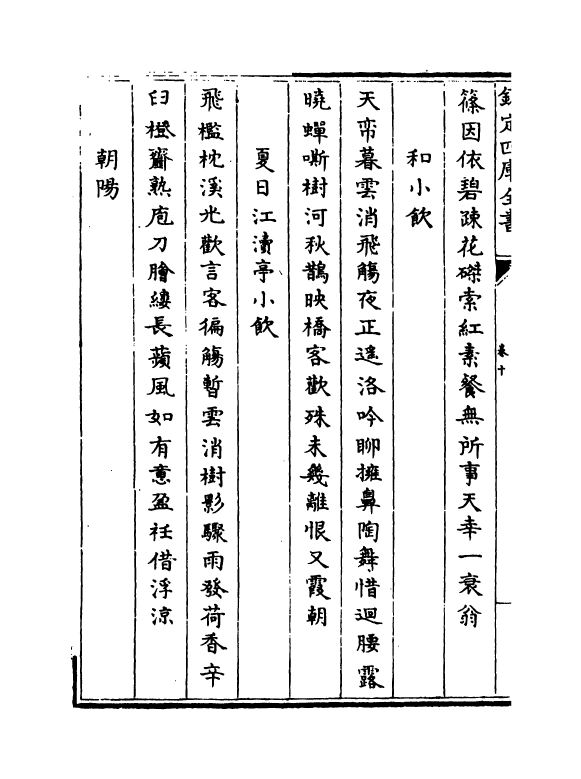 欽定四庫全書
卷十
篠因依碧疎花磔索紅素餐無所事天幸一衰翁
和小飲
天帟暮雲消飛觴夜正遥洛吟聊擁鼻陶舞惜迴腰露
曉蟬嘶樹河秋鵲映橋客歡殊未幾離恨又霞朝
夏日江瀆亭小飲
飛檻枕溪光歡言客徧觴暫雲消樹影驟雨發荷香辛
臼橙虀熟庖刀膾縷長蘋風如有意盈衽借浮涼
朝陽